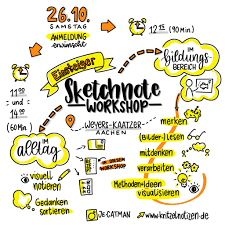 26.10.
SAMSTAG
ANMELDUNG
erwünscht
12 15 (90 Min.)
im
Bildungs-
BEREICH
Einsteiger
Sketchnote
WORKSHOP
WEYERS-KAATZER
AACHEN
11 00
und
14 00
(60 Min.)
im
alltag
merken
(Bilder-)lesen
mitdenken
verarbeiten
Methoden+Ideen
visualisieren
WORKSHOP
visuell
notieren
Gedanken
sortieren
JECATMAN
www.kritzelnotizen.de